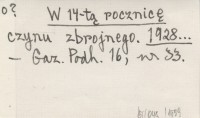 o?
W 14-tą rocznicę
czynu zbrojnego. 1928...
– Gaz. Podh. 16, nr 33.